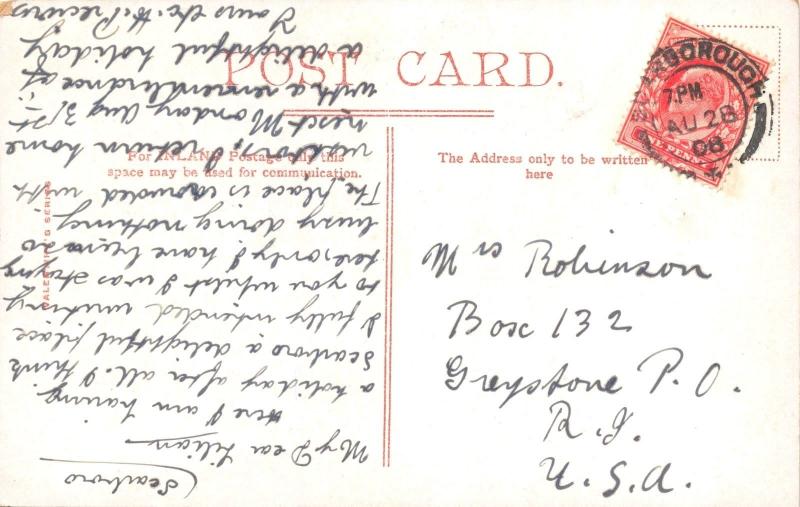 POST CARD.
For INLAND Postage only this
space may be used for communication.
The Address only to be written
here
SCARBOROUGH
7.PM
AU 28
08
Mrs Robinson
Box 132
Greystone P.O.
R.I.
U.S.A.
Scarboro
My Dear Lillian
Here I am having
a holiday after all. I think
Scarboro a delightful place
I fully intended writing
to you whilst I was staying
here, only I have been so
busy doing nothing
The place is crowded with
visitors, I return home
next Monday Aug 31st.
with a remembrance of
a delightful holiday
Yours etc. H.